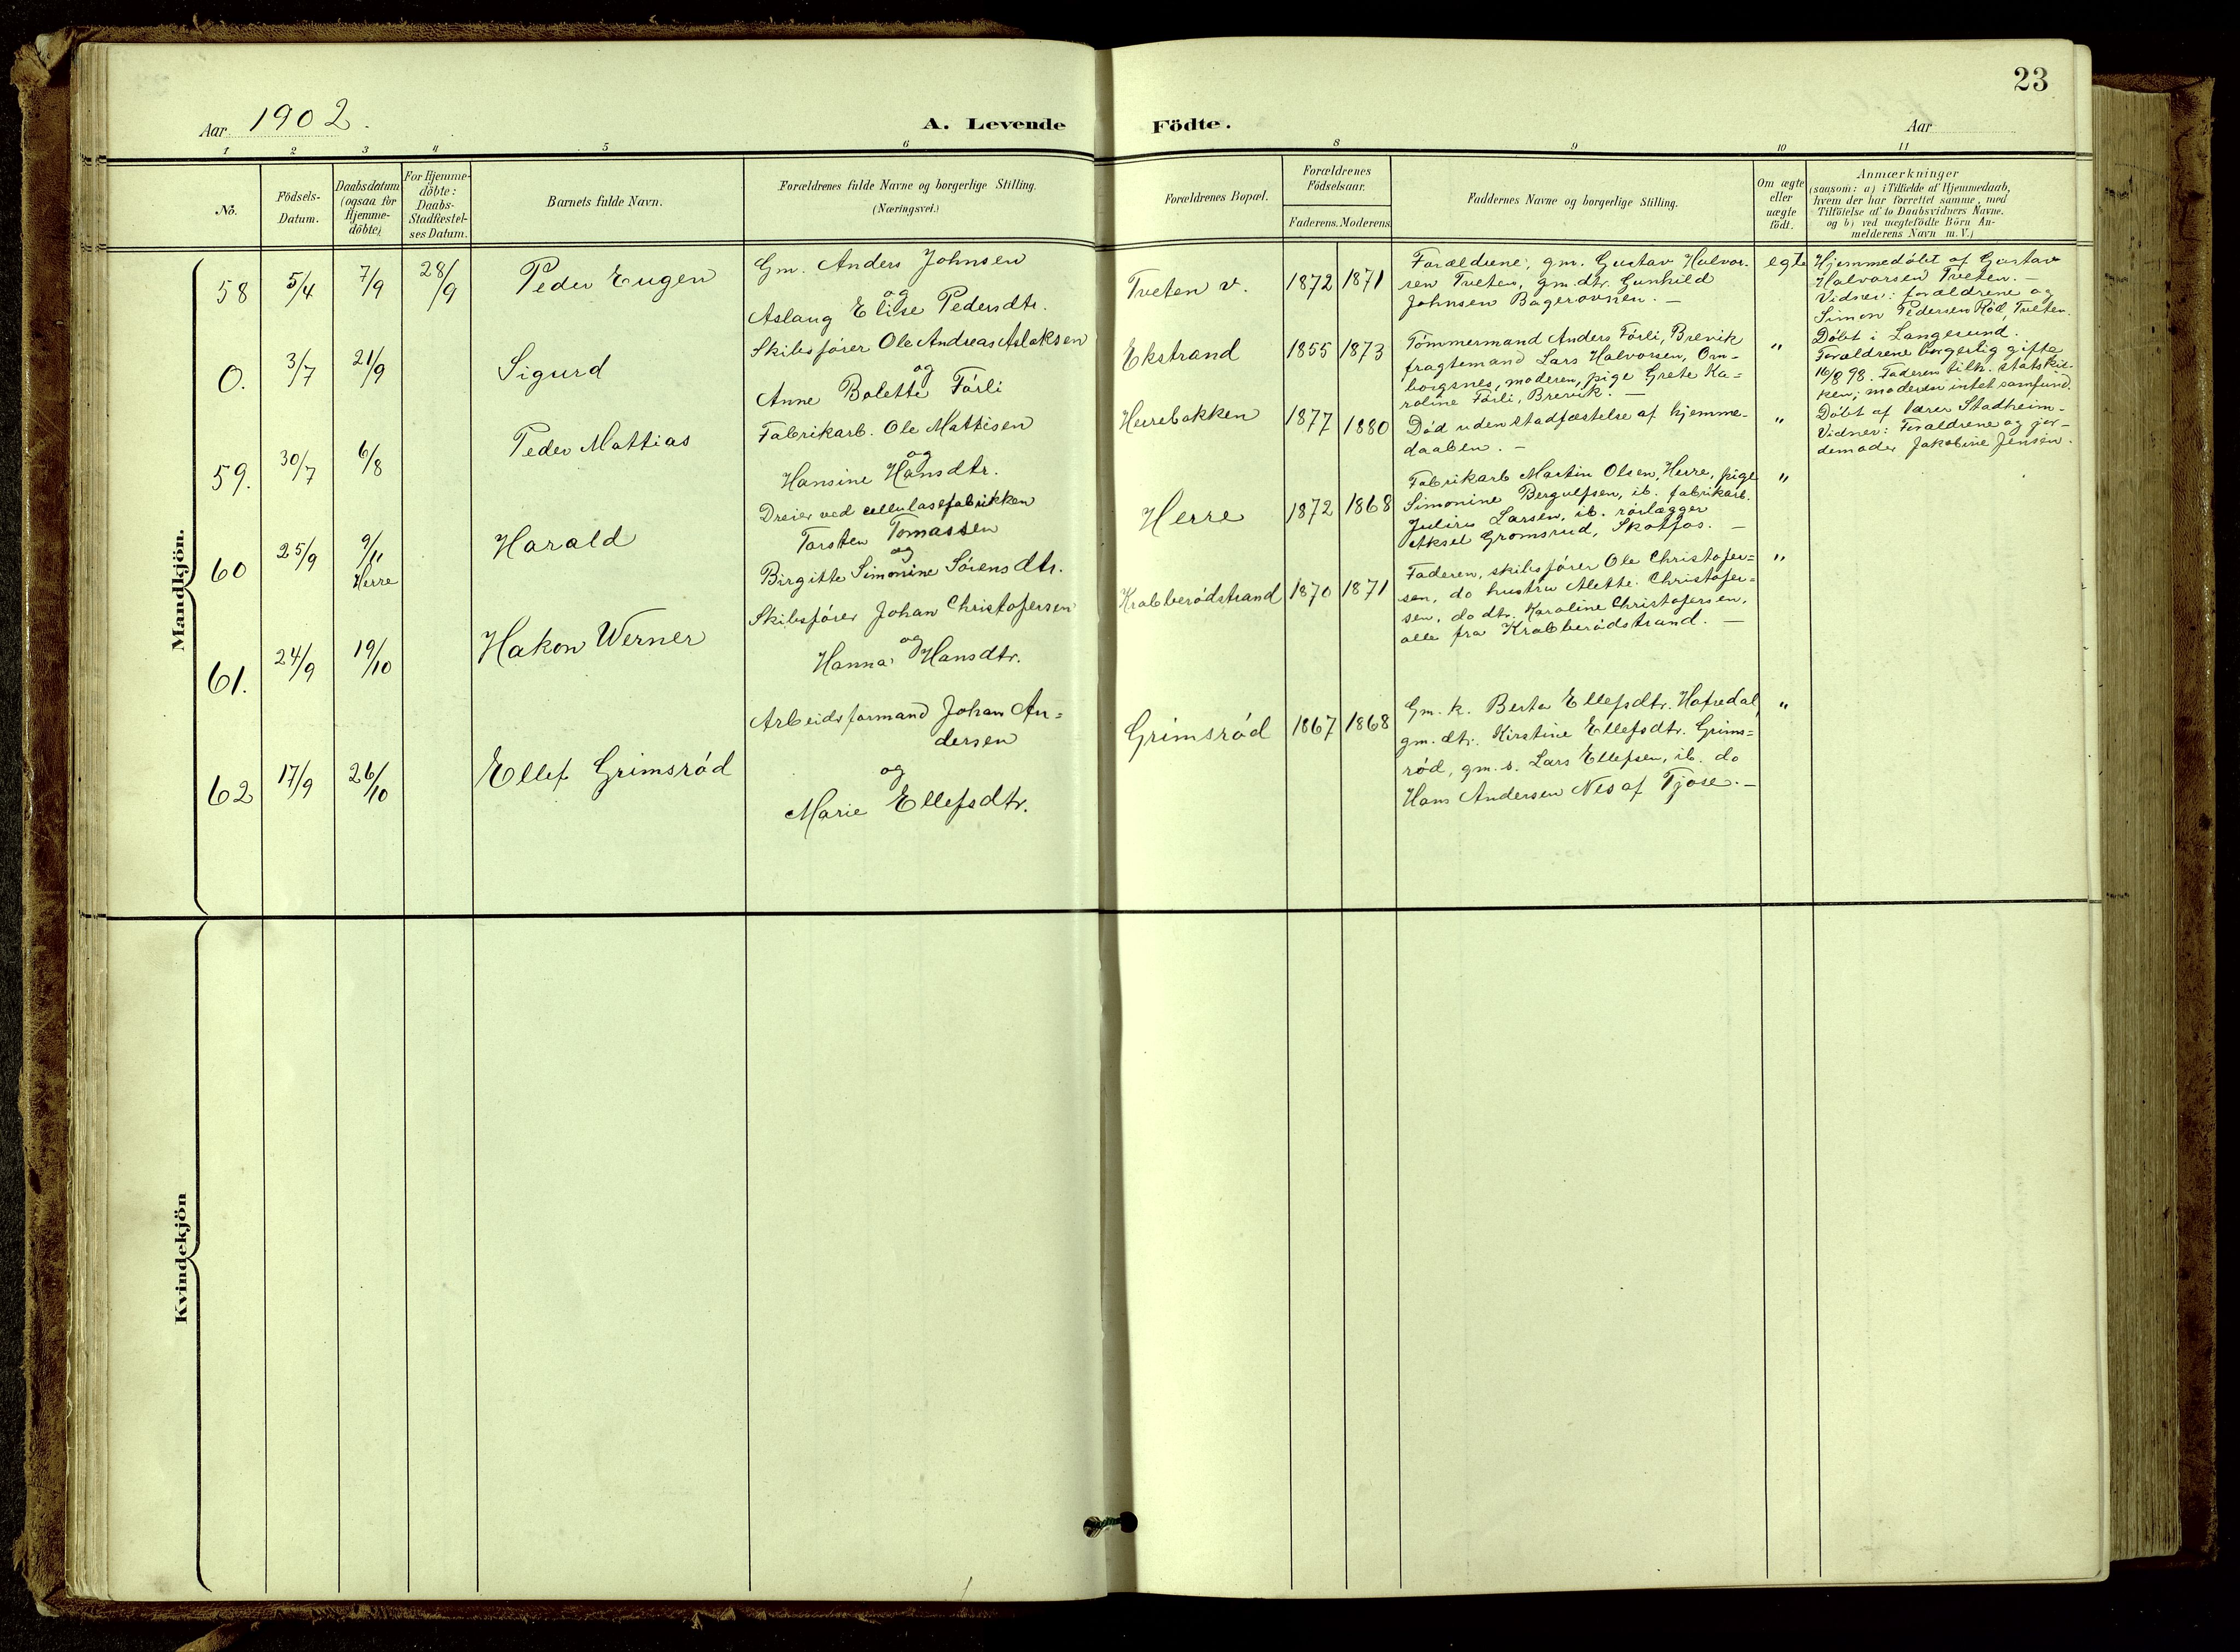 23
Aar 1902.
A. Levende Födte.
Aar
1 2 3 4 5 6 8 9 10 11
No.
Födsels-
Datum.
Daabsdatum
(ogsaa for
Hjemme-
döbte)
For Hjemme-
döbte:
Daabs-
Stadfæstel-
ses Datum.
Barnets fulde Navn.
Forældrenes fulde Navne og borgerlige Stilling.
(Næringsvei.)
Forældrenes Bopæl.
Forældrenes
Födselsaar.
Faderens. Moderens.
Faddernes Navne og borgerlige Stilling.
Om ægte
eller
uægte
födt.
Anmærkninger
(saasom: a) i Tilfælde af Hjemmedaab,
hvem der har forrettet samme, med
Tilföielse af to Daabsvidners Navne.
og b) ved uægtefödte Börn An-
melderens Navn m.V.)
Mandkjön.
58
5/4
7/9
28/9
Peder Eugen
Gm. Anders Johnsen
og
Aslaug Elise Pedersdtr.
Tveten v.
1872
1871
Forældrene, gm. Gustav Halvor-
sen Tveten, gm. dtr. Gunhild
Johnsen Bagerovnen. —
egte
Hjemmedøbt af Gustav
Halvorsen Tveten. —
Vidner: forældrene og
Simon Pedersen Rød, Tveten.
0.
3/7
21/9
Sigurd
Skibsfører Ole Andreas Aslaksen
og
Anne Bolette Førli
Ekstrand
1855
1873
Tømmermand Anders Førli, Brevik
fragtemand Lars Halvorsen, Om-
borgsnes, moderen, pige Grete Ka-
roline Førli, Brevik. —
"
Døbt i Langesund.
Forældrene borgerlig gifte
16/8 98. Faderen tilh. statskir-
ken; moderen intet samfund.
59.
30/7
6/8
Peder Mattias
Fabrikarb. Ole Mattisen
og
Hansine Hansdtr.
Herrebakken
1877
1880
Død uden stadfæstelse af hjemme-
daaben. —
"
Døbt af lærer Stadheim-
Vidner: Forældrene og jor-
demoder Jakobine Jensen.
60
25/9
9/11
Herre
Harald
Dreier ved cellulosefabrikken
Torsten Tomassen
og
Birgitte Simonine Sørensdtr.
Herre
1872
1868
Fabrikarb Martin Olsen, Herre, pige
Simonine Bergulfsen, ib. fabrikarb.
Julius Larsen, ib. rørlægger
Aksel Gromsrud, Skotfos. —
"
61.
24/9
19/10
Hakon Werner
Skibsfører Johan Christofersen
og
Hanna Hansdtr.
Krabberødstrand
1870
1871
Faderen, skibsfører Ole Christofer=
sen, do hustru Alette Christofer=
sen, do dtr. Karoline Christofersen,
alle fra Krabberødstrand. —
"
62
17/9
26/10
Ellef Grimsrød
Arbeidsformand Johan An=
dersen
og
Marie Ellefsdtr.
Grimsrød
1867
1868
Gm. k. Berta Ellefsdtr. Hafredal,
gm. dtr. Kirstine Ellefsdtr. Grims=
rød, gm. s. Lars Ellefsen, ib. do
Hans Andersen Nes af Tjose. —
"
Kvindekjön